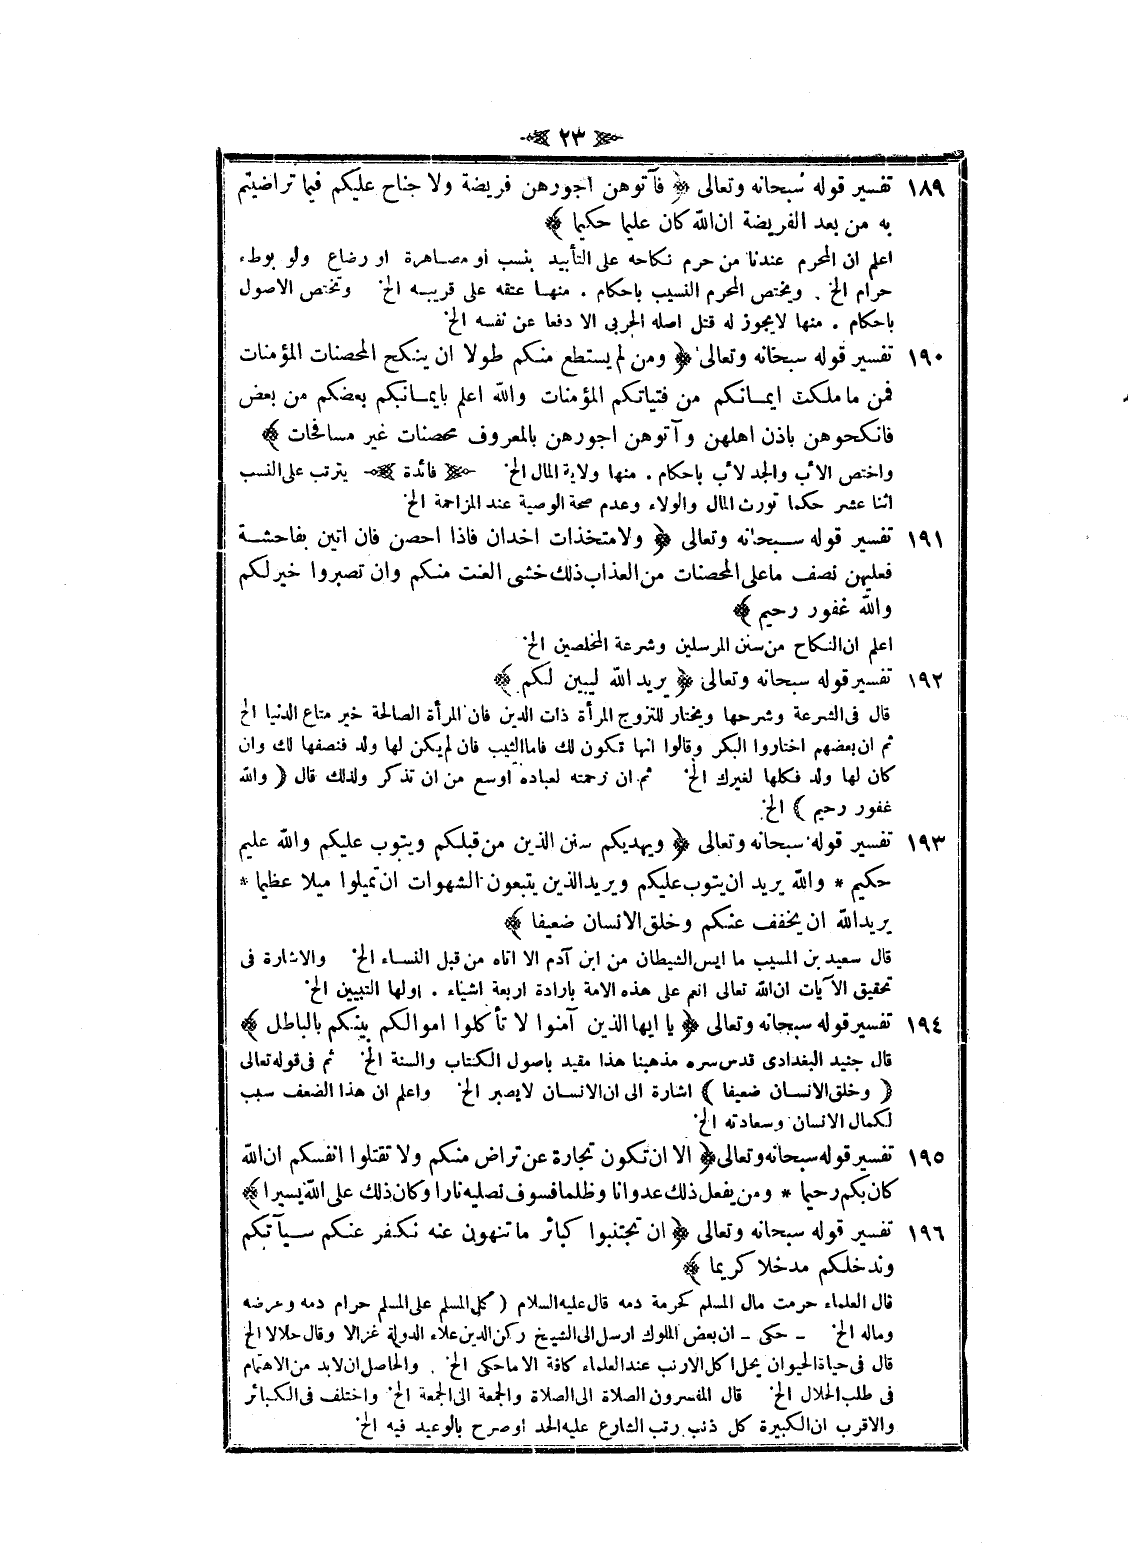 ٢٣
١٨٩ تفسير قوله سبحانه وتعالى ﴿ فآتوهن اجورهن فريضة ولا جناح عليكم فيما تراضيتم
به من بعد الفريضة ان الله كان عليما حكيما ﴾
اعلم ان المحرم عندنا من حرم نكاحه على التأبيد بنسب او مصاهرة او رضاع ولو بوطء
حرام الخ . ويختص المحرم النسيب باحكام . منها عتقه على قريبه الخ وتختص الاصول
باحكام . منها لايجوز له قتل اصله الحربى الا دفعا عن نفسه الخ
١٩٠ تفسير قوله سبحانه وتعالى ﴿ ومن لم يستطع منكم طولا ان ينكح المحصنات المؤمنات
فمن ما ملكت ايمانكم من فتياتكم المؤمنات والله اعلم بايمانكم بعضكم من بعض
فانكحوهن باذن اهلهن وآتوهن اجورهن بالمعروف محصنات غير مسافحات ﴾
واختص الأب والجد لاب باحكام . منها ولاية المال الخ فائدة يترتب على النسب
اثنا عشر حكما تورث المال والولاء وعدم صحة الوصية عند المزاحمة الخ
١٩١ تفسير قوله سبحانه وتعالى ﴿ ولا متخذات اخدان فاذا احصن فان اتين بفاحشة
فعليهن نصف ما على المحصنات من العذاب ذلك خشى العنت منكم وان تصبروا خير لكم
والله غفور رحيم ﴾
اعلم ان النكاح من سنن المرسلين وشرعة المخلصين الخ
١٩٢ تفسير قوله سبحانه وتعالى ﴿ يريد الله ليبين لكم ﴾
قال فى الشرعة وشرحها ويختار للتزوج المرأة ذات الدين فان المرأة الصالحة خير متاع الدنيا الخ
ثم ان بعضهم اختاروا البكر وقالوا انها تكون لك فاما الثيب فان لم يكن لها ولد فنصفها لك وان
كان لها ولد فكلها لغيرك الخ ثم ان رحمته لعباده اوسع من ان تذكر ولذلك قال ( والله
غفور رحيم ) الخ
١٩٣ تفسير قوله سبحانه وتعالى ﴿ ويهديكم سنن الذين من قبلكم ويتوب عليكم والله عليم
حكيم * والله يريد ان يتوب عليكم ويريد الذين يتبعون الشهوات ان تميلوا ميلا عظيما *
يريد الله ان يخفف عنكم وخلق الانسان ضعيفا ﴾
قال سعيد بن المسيب ما ايس الشيطان من ابن آدم الا اتاه من قبل النساء الخ والاشارة فى
تحقيق الآيات ان الله تعالى انعم على هذه الامة بارادة اربعة اشياء . اولها التبيين الخ
١٩٤ تفسير قوله سبحانه وتعالى ﴿ يا ايها الذين آمنوا لا تأكلوا اموالكم بينكم بالباطل ﴾
قال جنيد البغدادى قدس سره مذهبنا هذا مقيد باصول الكتاب والسنة الخ ثم فى قوله تعالى
( وخلق الانسان ضعيفا ) اشارة الى ان الانسان لا يصبر الخ واعلم ان هذا الضعف سبب
لكمال الانسان وسعادته الخ
١٩٥ تفسير قوله سبحانه وتعالى ﴿ الا ان تكون تجارة عن تراض منكم ولا تقتلوا انفسكم ان الله
كان بكم رحيما * ومن يفعل ذلك عدوانا وظلما فسوف نصليه نارا وكان ذلك على الله يسيرا ﴾
١٩٦ تفسير قوله سبحانه وتعالى ﴿ ان تجتنبوا كبائر ما تنهون عنه نكفر عنكم سيآتكم
وندخلكم مدخلا كريما ﴾
قال العلماء حرمت مال المسلم كحرمة دمه قال عليه السلام ( كل المسلم على المسلم حرام دمه وعرضه
وماله الخ ـ حكى ـ ان بعض الملوك ارسل الى الشيخ ركن الدين علاء الدولة غزالا وقال حلالا الخ
قال فى حياة الحيوان يحل اكل الارنب عند العلماء كافة الا ما حكى الخ . والحاصل ان لابد من الاهتمام
فى طلب الحلال الخ قال المفسرون الصلاة الى الصلاة والجمعة الى الجمعة الخ واختلف فى الكبائر
والاقرب ان الكبيرة كل ذنب رتب الشارع عليه الحد او صرح بالوعيد فيه الخ